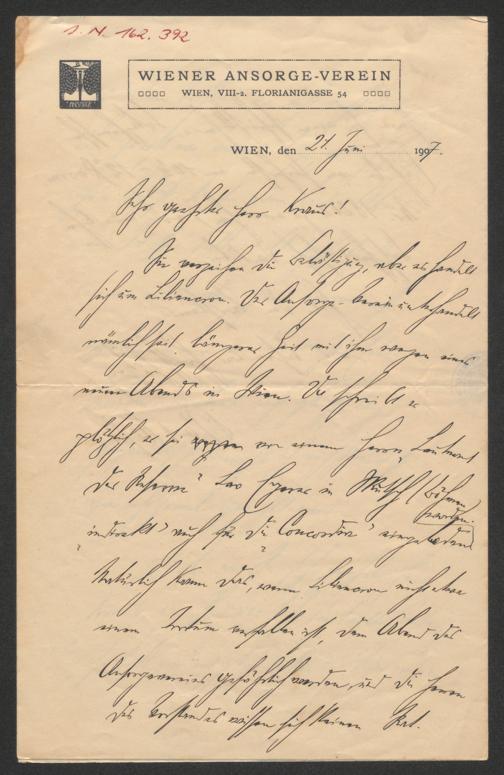 I. N. 162.392
WIENER ANSORGE-VEREIN
WIEN, VIII-2. FLORIANIGASSE 54
WIEN, den 21. Juni 1907.
Sehr geehrter Herr Kraus!
Sie verzeihen die Belästigung, aber es handelt
sich um Liliencron. Der Ansorge-Verein unterhandelt
nämlich seit längerer Zeit mit ihm wegen eines
neuen Abends in Wien. Da schreibt er
plötzlich, er sei von einem Herrn "Leutnant
der Reserve" Leo in (Böhmen
indirekt auch für die "Concordia" eingeladen
worden.
Natürlich kann das, wenn Liliencron nicht etwa
einem Irrtum verfallen ist, dem Abend des
Ansorgevereins gefährlich werden, und die Herren
des Vorstandes wissen sich keinen Rat.